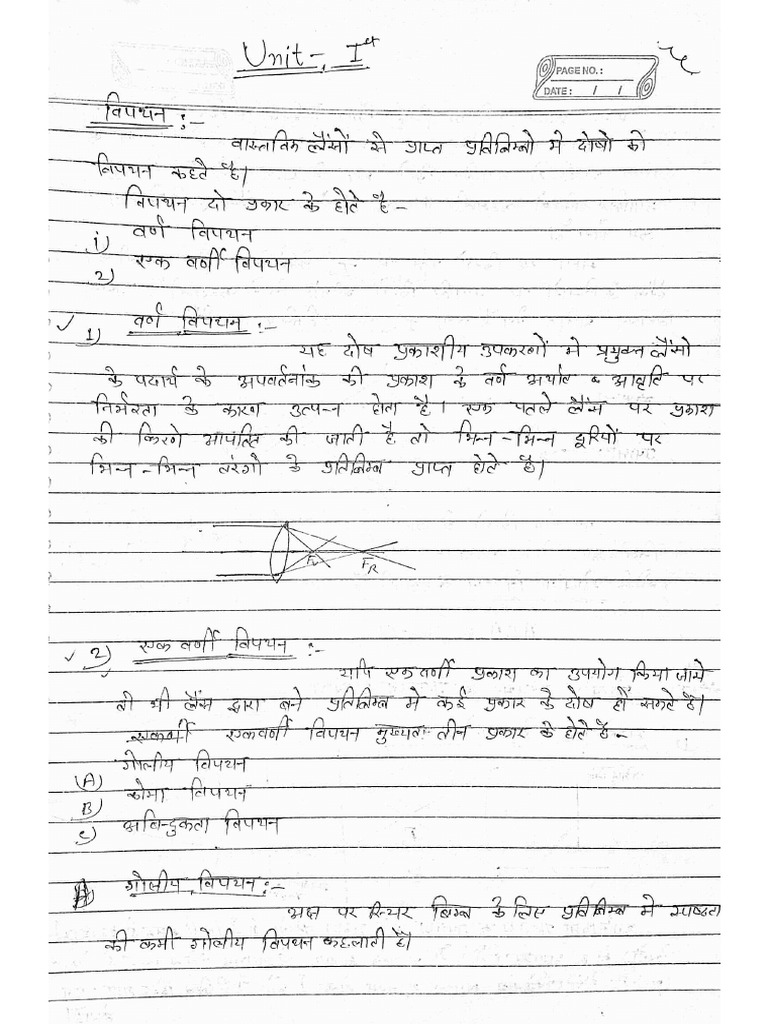 Unit-, Ist
PAGE NO.:
DATE: / /
विपथन :-
वास्तविक लैंसों से प्राप्त प्रतिबिम्बो मे दोषो को
विपथन कहते है।
विपथन दो प्रकार के होते है -
i) वर्ण विपथन
2) एक वर्णी विपथन
✓ 1) वर्ण विपथन :-
यह दोष प्रकाशीय उपकरणों मे प्रयुक्त लैंसो
के पदार्थ के अपवर्तनांक की प्रकाश के वर्ण अर्थात आवृति पर
निर्भरता के कारण उत्पन्न होता है। एक पतले लैंस पर प्रकाश
की किरणे आपतित की जाती है तो भिन्न-भिन्न दूरियों पर
भिन्न-भिन्न तरंगो के प्रतिबिम्ब प्राप्त होते है।
Fv FR
✓ 2) एक वर्णी विपथन :-
यदि एक वर्णी प्रकाश का उपयोग किया जाये
तो भी लैंस द्वारा बने प्रतिबिम्ब मे कई प्रकार के दोष हो सकते है।
एकवर्णी विपथन मुख्यतः तीन प्रकार के होते है -
(A) गोलीय विपथन
B) कोमा विपथन
c) अबिन्दुकता विपथन
गोलीय विपथन :-
अक्ष पर स्थिर बिम्ब के लिए प्रतिबिम्ब मे स्पष्टता
की कमी गोलीय विपथन कहलाती है।